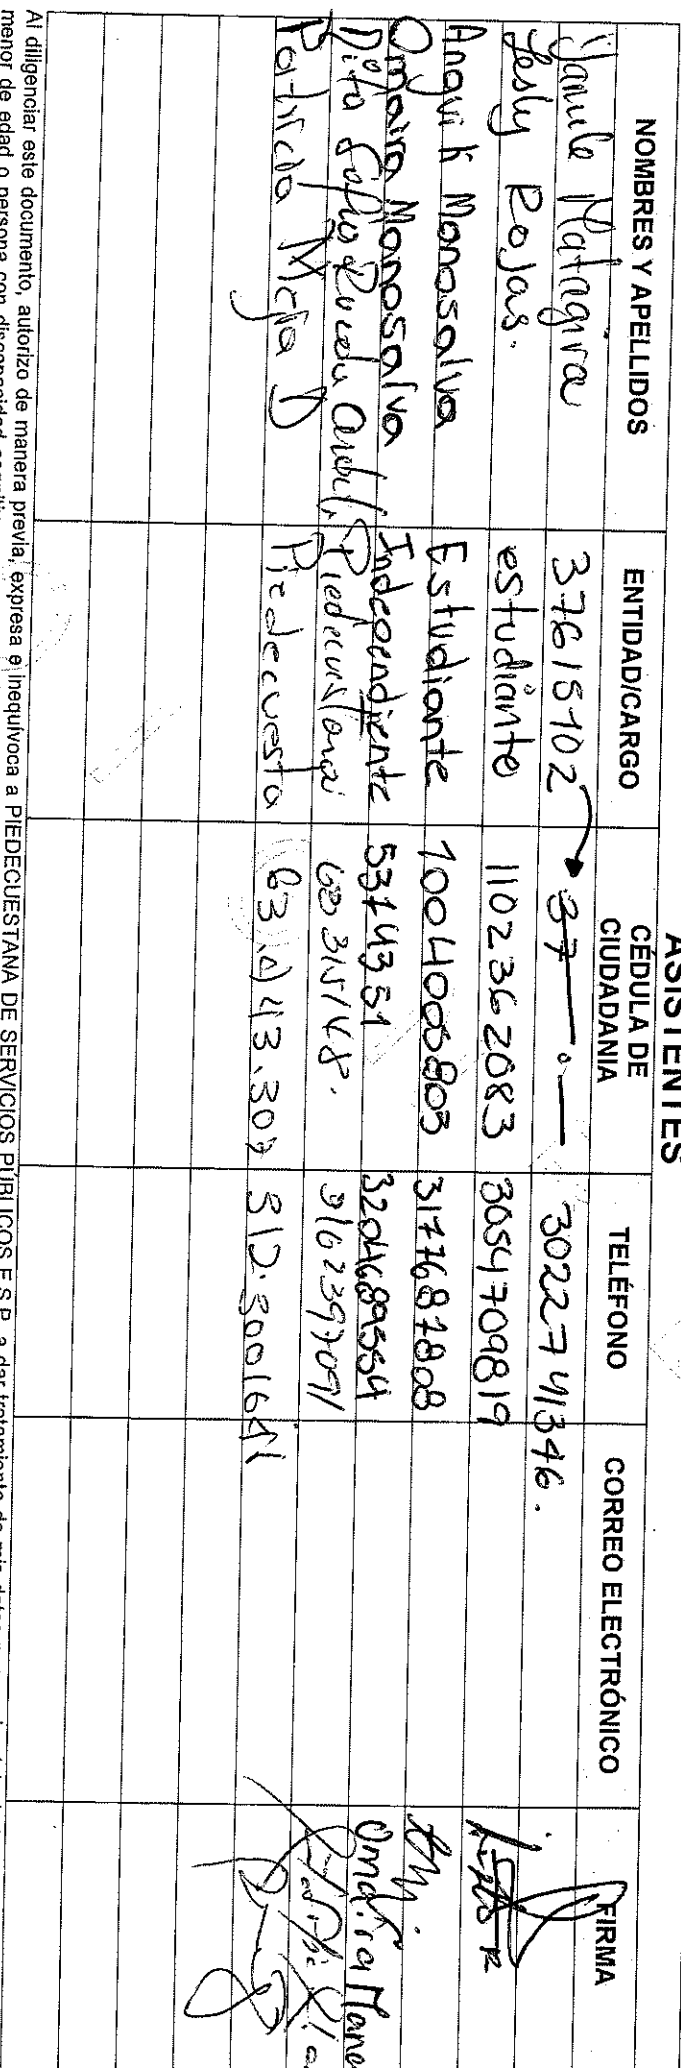 ASISTENTES
NOMBRES Y APELLIDOS ENTIDAD/CARGO CÉDULA DE CIUDADANIA TELÉFONO CORREO ELECTRÓNICO FIRMA
Yamile Matagira 37615102 37 3022741346.
Lesly Rojas. estudiante 1102362083 3054709819
Angui k Manosalva Estudiante 1004100803 3177687808
Omaira Manosalva Independiente 5314351 3204689554 Omaira Mano
Rueda Piedecuestana 3162397091
Patricia Mejia D Piedecuesta 312.5001641
Al diligenciar este documento, autorizo de manera previa, expresa e inequívoca a PIEDECUESTANA DE SERVICIOS PÚBLICOS E.S.P. a dar tratamiento de mis datos
menor de edad o persona con discapacidad